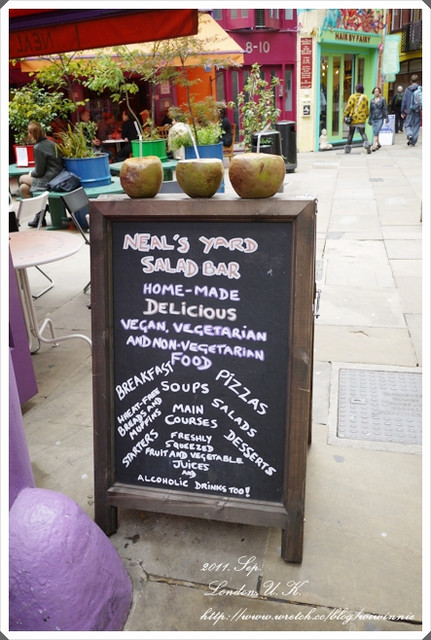 NEAL
8-10
HAIR BY FAIRY
NEAL'S YARD
SALAD BAR
HOME-MADE
DELICIOUS
VEGAN, VEGETARIAN
AND NON-VEGETARIAN
FOOD
BREAKFAST
SOUPS
PIZZAS
WHEAT-FREE
BREADS AND
MUFFINS
MAIN
COURSES
SALADS
STARTERS
FRESHLY
SQUEEZED
FRUIT AND VEGETABLE
JUICES
AND
DESSERTS
ALCOHOLIC DRINKS TOO!
2011. Sep.
London, U.K.
http://www.wretch.cc/blog/weiwinnie